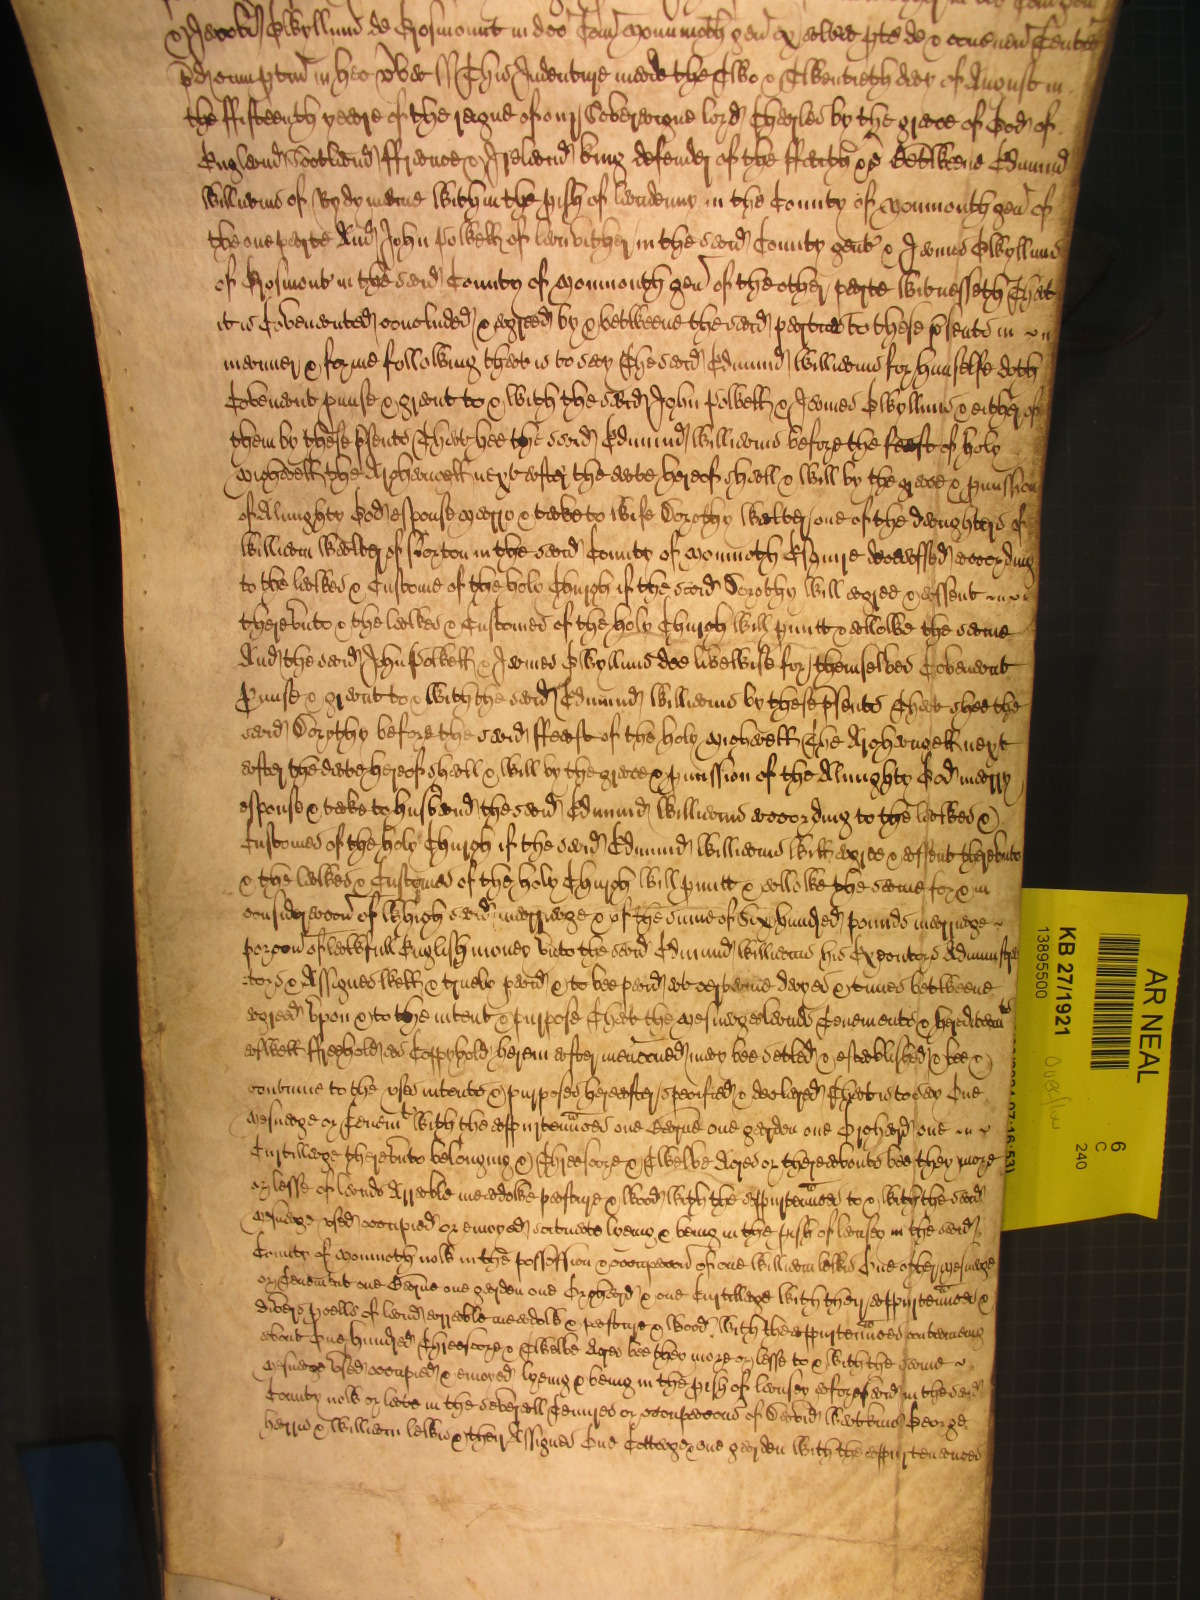 & Jacobū Gwyllims de Grosmount in dco Com Monmoth gen ex altera pte de & conc'nen Centū
This Indenture made the Two & Twentieth day of August in
the ffifteenth yeare of the raigne of our Soveraigne lord Charles by the grace of God of
England Scotland ffrance & Ireland king defender of the ffaith &c Betweene Edmund
Williams of within the pish of in the County of Monmouth gen of
the one parte And John Powell of in the said County gent & James Gwyllims
of Grosmont in the said County of Monmouth gen of the other parte Witnesseth That
it is Covenanted concluded & agreed by & betweene the said parties to these psents in
manner & forme following that is to say The said Edmund Williams for himselfe doth
Covenant pmise & grant to & with the said John Powell & James Gwyllims & either of
them by these psents That hee the said Edmund Williams before the feast of holy
Michaell the Archangell next after the date hereof shall & will by the grace & pmission
of Almighty God espouse marry & take to wife Dorothy Walter one of the daughters of
William Walter of Norton in the said County of Monmoth Esquire deceassed according
to the lawes & Custome of the holy Church if the said Dorothy will agree & assent
therevnto & the lawes & Customes of the holy Church will pmitt & allowe the same
And the said John Powell & James Gwyllims doe likewise for themselves Covenant
Pmise & grant to & with the said Edmund Williams by these psents That shee the
said Dorothy before the said ffeast of the holy Michaell The Archangell next
after the date hereof shall & will by the grace & pmission of the Almighty God marry
espouse & take to husband the said Edmund Williams according to the lawes &
Customes of the holy Church if the said Edmund Williams will agree & assent therevnto
& the lawes & Customes of the holy Church will pmitt & allowe the same for & in
consideracon of which said marriage & of the summe of Six hundred pounds marriage
porcon of lawfull English money vnto the said Edmund Williams his Executors Administra
tors & Assignes well & truely paid & to bee paid at certaine dayes & times betweene
agreed vpon & to the intent & purpose That the Mesuages lands Tenements & hereditamts
aswell ffreehold as Coppyhold herein after menconed may bee setled & established & bee &
continue to the vses intents & purposes hereafter specified & declared That is to say One
Mesuage or Tenemt with the appurtennces one Barne one garden one Orchard one
Curtillage therevnto belonging & Threescore & Twelve Acres or thereabouts bee they more
or lesse of lands Arrable meadowe pasture & wood with the appurtennces to & with the said
Mesuage vsed occupied or enioyed scituate lyeing & being in the pish of in the said
County of Monmoth now in the possession & occupacon of one William lewis One other Mesuage
or Tenement one Barne one garden one Orchard & one Curtillage with their appurtennces &
divers pcells of land arrable meadow & pasture & wood with the appurtennces conteineing
about One hundred Threescore & Twelve Acres bee they more or lesse to & with the same
Mesuage vsed occupied & enioyed lyeing & being in the pish of aforesaid in the said
County now or late in the severall Tenures or occupacons of David Watkins George
Harris & William lewis & their Assignes One Cottage & one garden with the appurtenances
AR NEAL
KB 27/1921
13895500
6
C
240
Overflow